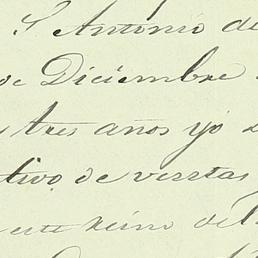 S Antonio de
de Diciembre
tres años yo
tivo de verctas
este Reino del